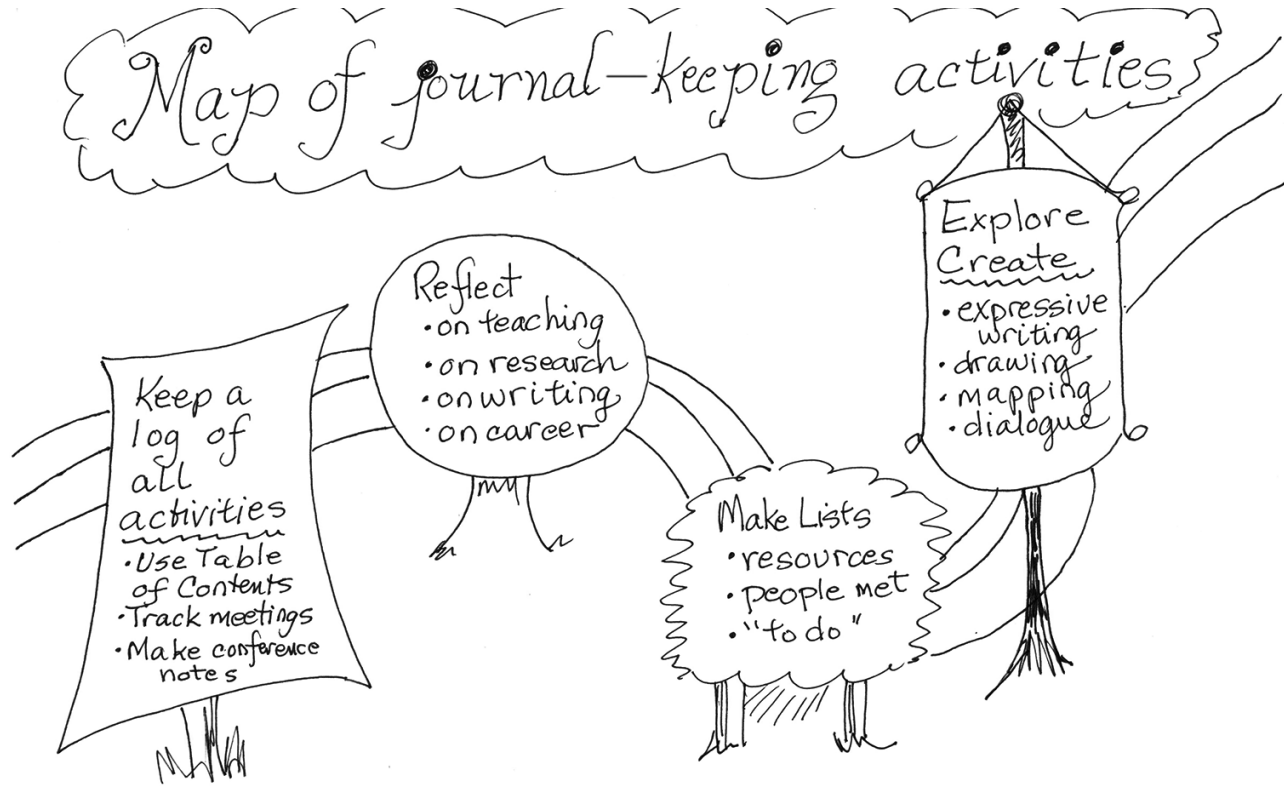 Map of journal-keeping activities
Keep a
log of
all
activities
• Use Table
of Contents
• Track meetings
• Make conference
notes
Reflect
• on teaching
• on research
• on writing
• on career
Make Lists
• resources
• people met
• "to do"
Explore
Create
• expressive
writing
• drawing
• mapping
• dialogue